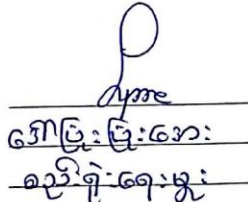 ဒေါ်ဖြူးဖြူးအေး
စည်းရုံးရေးမှူး